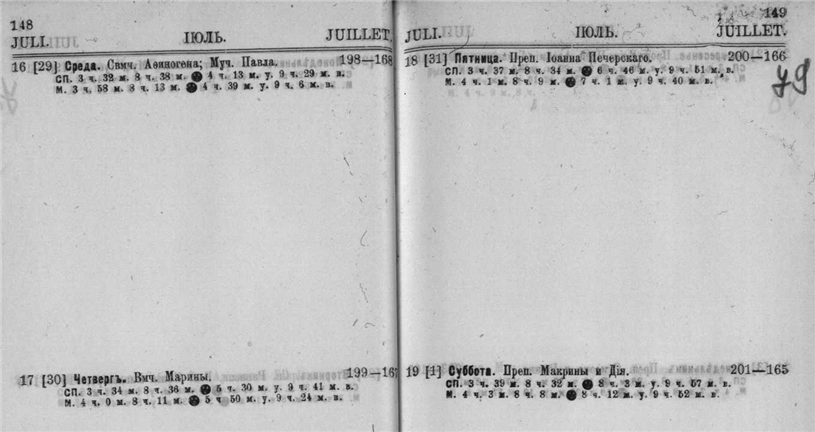 148
JULI. ІЮЛЬ. JUILLET.
16 [29] Среда. Свмч. Аѳиногена; Муч. Павла. 198—168
СП. 3 ч. 32 м. 8 ч. 38 м. ● 4 ч. 13 м. у. 9 ч. 29 м. в.
М. 3 ч. 58 м. 8 ч. 13 м. ● 4 ч. 39 м. у. 9 ч. 6 м. в.
17 [30] Четвергъ. Вмч. Марины. 199—167
СП. 3 ч. 34 м. 8 ч. 36 м. ● 5 ч. 30 м. у. 9 ч. 41 м. в.
М. 4 ч. 0 м. 8 ч. 11 м. ● 5 ч 50 м. у. 9 ч. 24 м. в.
149
JULI. ІЮЛЬ. JUILLET.
18 [31] Пятница. Преп. Іоанна Печерскаго. 200—166
СП. 3 ч. 37 м. 8 ч. 34 м. ● 6 ч. 46 м. у. 9 ч. 51 м. в.
М. 4 ч. 1 м. 8 ч. 9 м. ● 7 ч. 1 м. у. 9 ч. 40 м. в.
79
19 [1] Суббота. Преп. Макрины и Дія. 201—165
СП. 3 ч. 39 м. 8 ч. 32 м. ● 8 ч. 3 м. у. 9 ч. 57 м. в.
М. 4 ч. 3 м. 8 ч. 8 м. ● 8 ч. 12 м. у. 9 ч. 52 м. в.